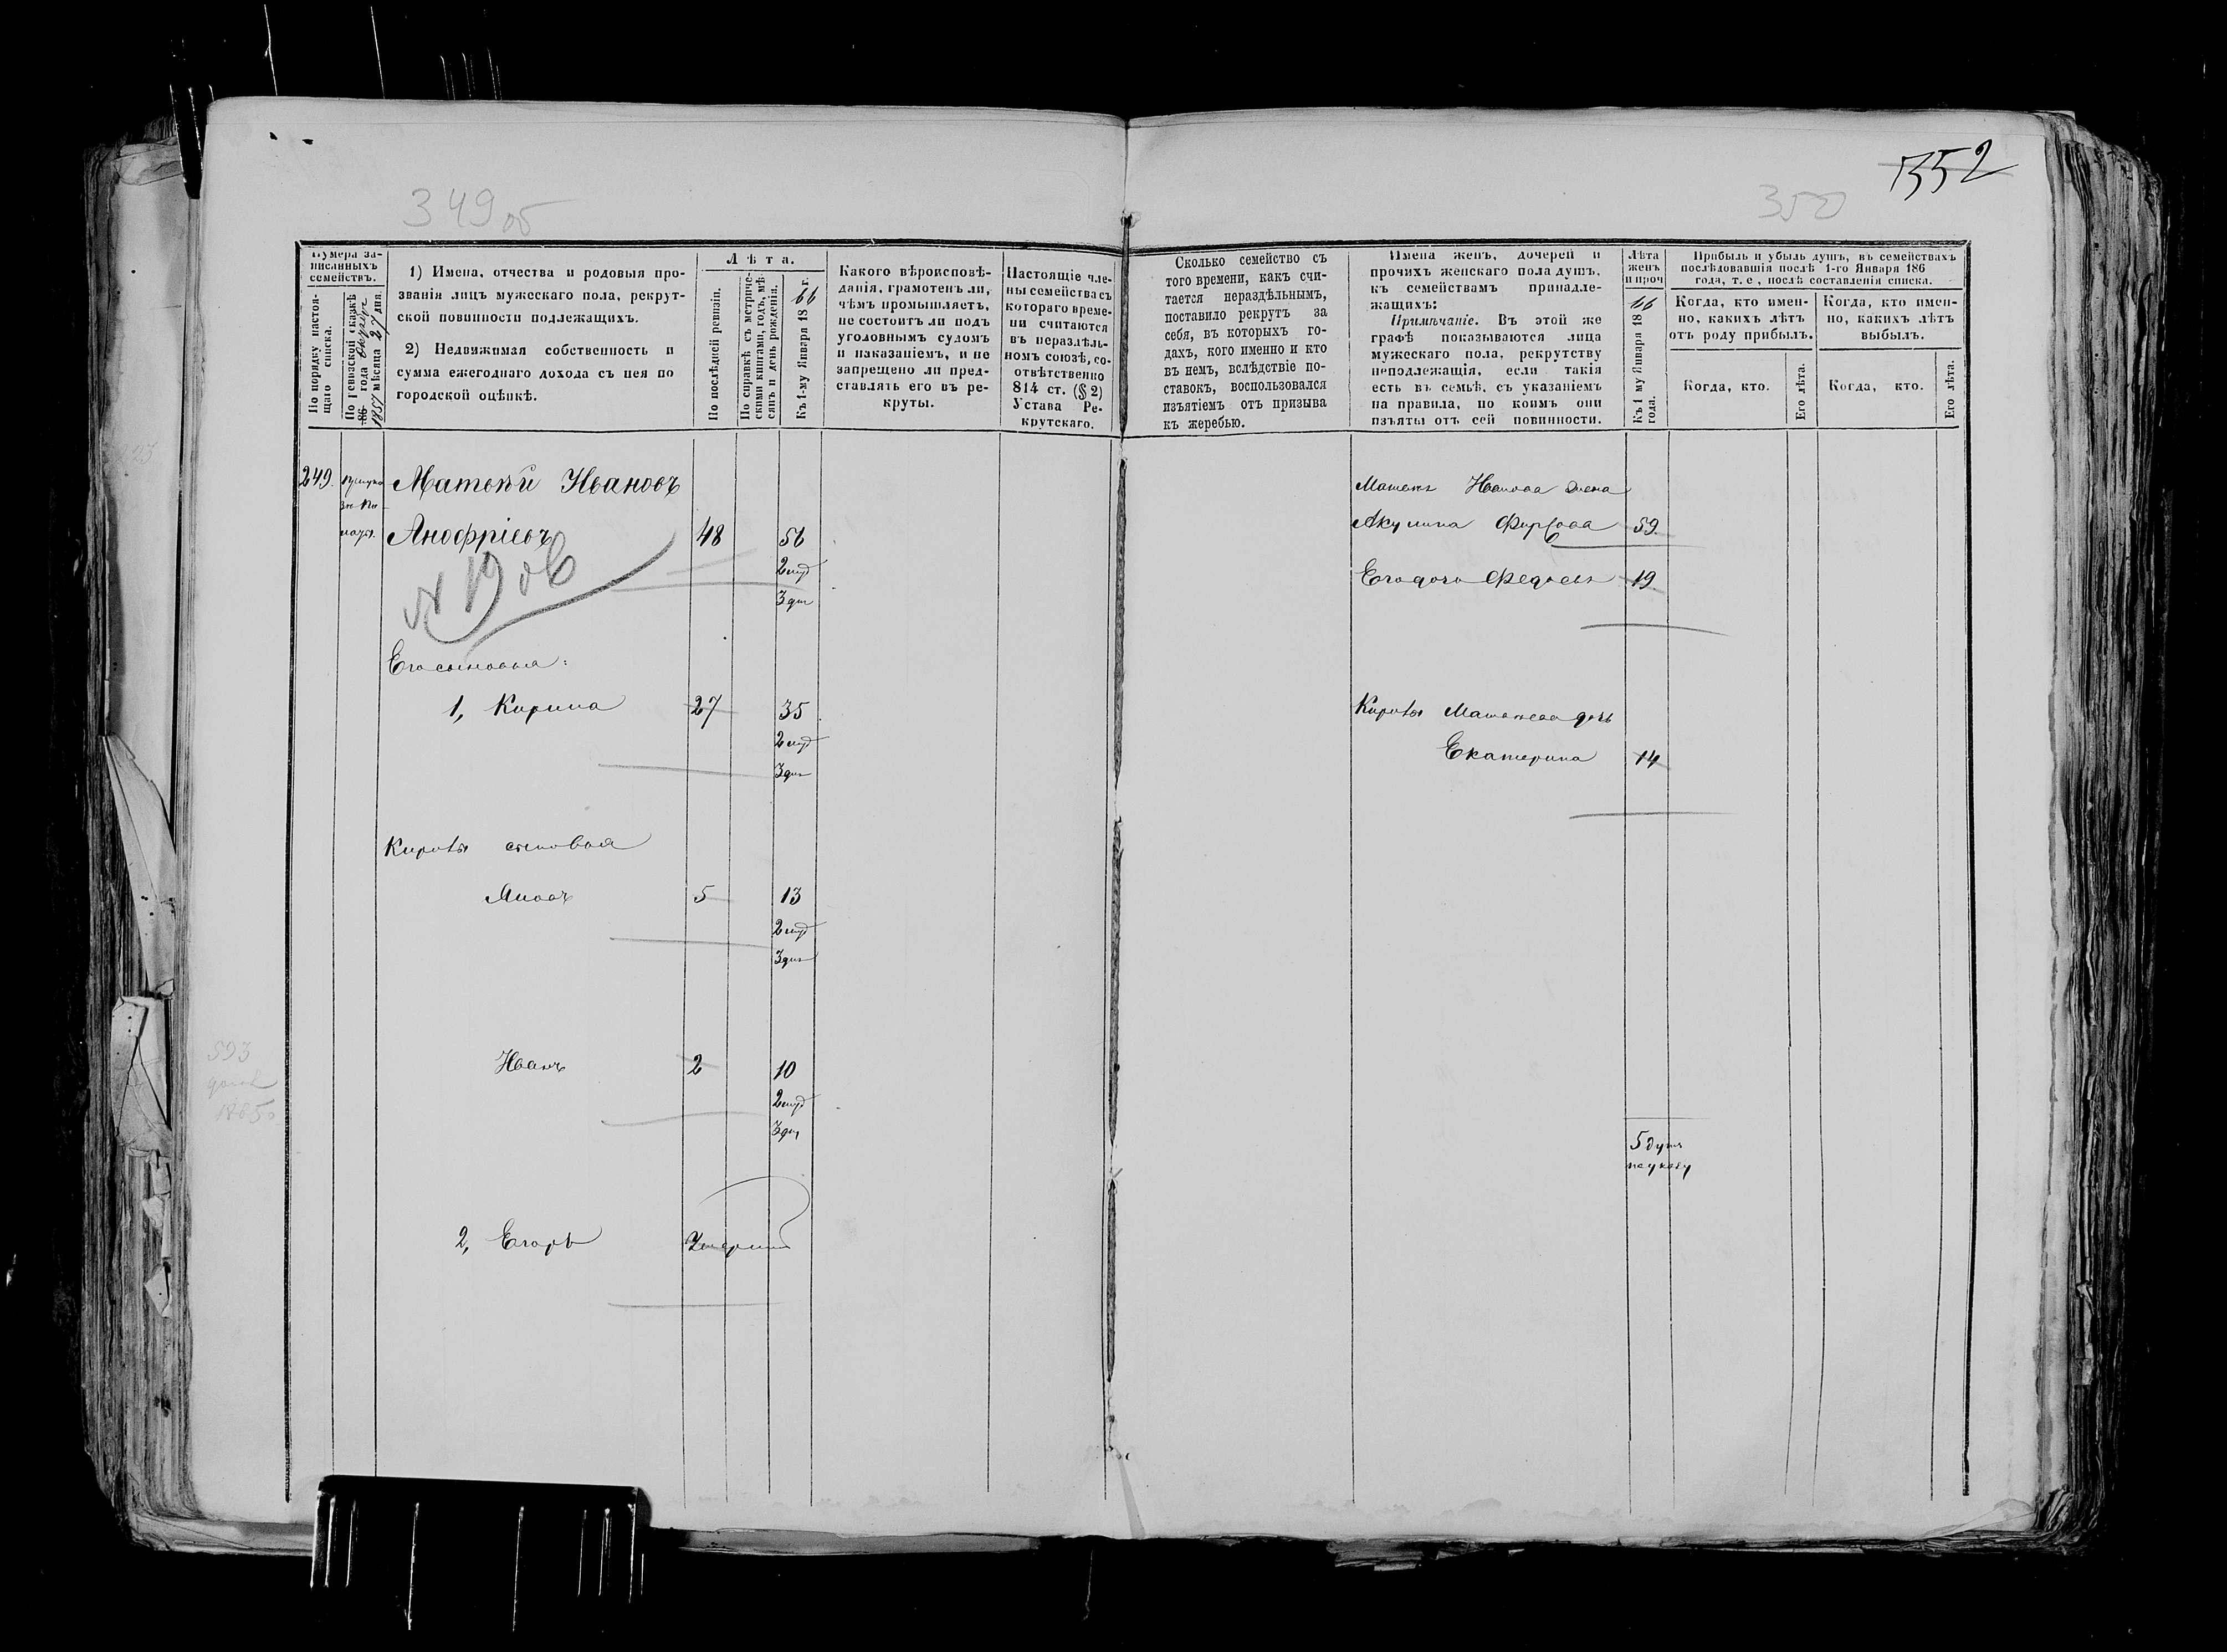 349об
350
352
Нумера за-
писанныхъ
семействъ.
По порядку настоя-
щаго списка.
По ревизской сказкѣ
186 года
1857 мѣсяца 27 дня.
1) Имена, отчества и родовыя про-
званія лицъ мужескаго пола, рекрут-
ской повинности подлежащихъ.
2) Недвижимая собственность и
сумма ежегоднаго дохода съ нея по
городской оцѣнкѣ.
Лѣта.
По послѣдней ревизіи.
По справкѣ съ метриче-
скими книгами, годъ, мѣ-
сяцъ и день рожденія.
Къ 1-му Января 1866 г.
Какого вѣроисповѣ-
данія, грамотенъ ли,
чѣмъ промышляетъ,
не состоитъ ли подъ
уголовнымъ судомъ
и наказаніемъ, и не
запрещено ли пред-
ставлять его въ ре-
круты.
Настоящіе чле-
ны семейства съ
котораго време-
ни считаются
въ нераздѣль-
номъ союзѣ, со-
отвѣтственно
814 ст. (§ 2)
Устава Ре-
крутскаго.
Сколько семейство съ
того времени, какъ счи-
тается нераздѣльнымъ,
поставило рекрутъ за
себя, въ которыхъ го-
дахъ, кого именно и кто
въ немъ, вслѣдствіе по-
ставокъ, воспользовался
изъятіемъ отъ призыва
къ жеребью.
Имена женъ, дочерей и
прочихъ женскаго пола душъ,
къ семействамъ принадле-
жащихъ:
Примѣчаніе. Въ этой же
графѣ показываются лица
мужескаго пола, рекрутству
неподлежащія, если такія
есть въ семьѣ, съ указаніемъ
на правила, по коимъ они
изъяты отъ сей повинности.
Лѣта
женъ
и проч
Къ 1 му Января 1866
года.
Прибыль и убыль душъ, въ семействахъ
послѣдовавшія послѣ 1-го Января 186
года, т. е, послѣ составленія списка.
Когда, кто имен-
но, какихъ лѣтъ
отъ роду прибылъ.
Когда, кто имен-
но, какихъ лѣтъ
выбылъ.
Когда, кто.
Его лѣта.
Когда, кто.
Его лѣта.
249. Матвѣй Ивановъ
Анофріевъ 48 56
Его сыновья:
1, Кирила 27 35
Кирилы сыновья
5 13
Иванъ 2 10
2, Егоръ
Матвѣя Иванова жена
Акулина 59.
19
Кирилы Матвѣева дочь
Екатерина 14
5 душъ
593